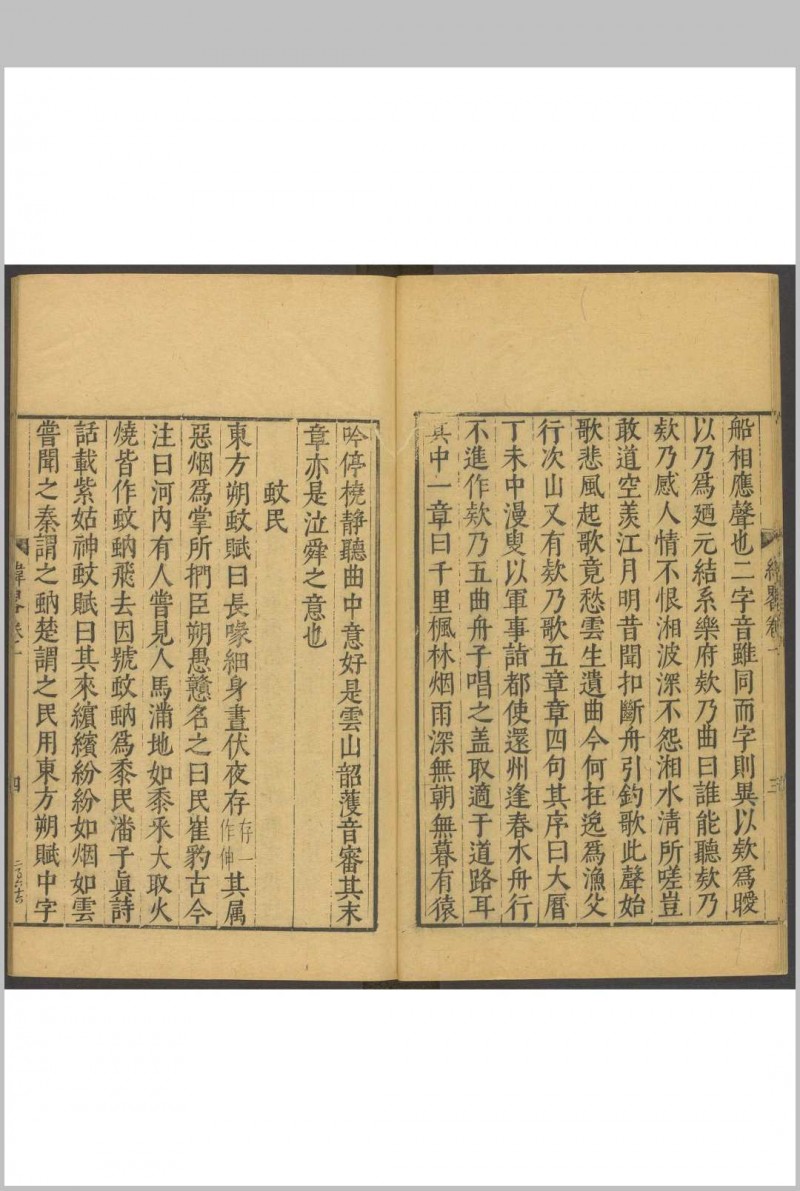 船相應聲也二字音雖同而字則異以欸爲曖
以乃爲廼元結系樂府欸乃曲曰誰能聽欸乃
欸乃感人情不恨湘波深不怨湘水清所嗟豈
敢道空羨江月明昔聞扣斷舟引釣歌此聲始
歌悲風起歌竟愁雲生遺曲今何在逸爲漁父
行次山又有欸乃歌五章章四句其序曰大曆
丁未中漫叟以軍事詣都使還州逢春水舟行
不進作欸乃五曲舟子唱之盖取適于道路耳
其中一章曰千里楓林烟雨深無朝無暮有猿
緯畧卷一
三
吟停橈靜聽曲中意好是雲山韶濩音審其末
章亦是泣舜之意也
蚊民
東方朔蚊賦曰長喙細身晝伏夜存存一作伸其属
惡烟爲掌所捫臣朔愚戇名之曰民崔豹古今
注曰河内有人嘗見人馬滿地如黍釆大取火
燒皆作蚊蚋飛去因號蚊蚋爲黍民潘子眞詩
話載紫姑神蚊賦曰其來繽繽紛紛如烟如雲
嘗聞之秦謂之蚋楚謂之民用東方朔賦中字
緯畧卷一
四